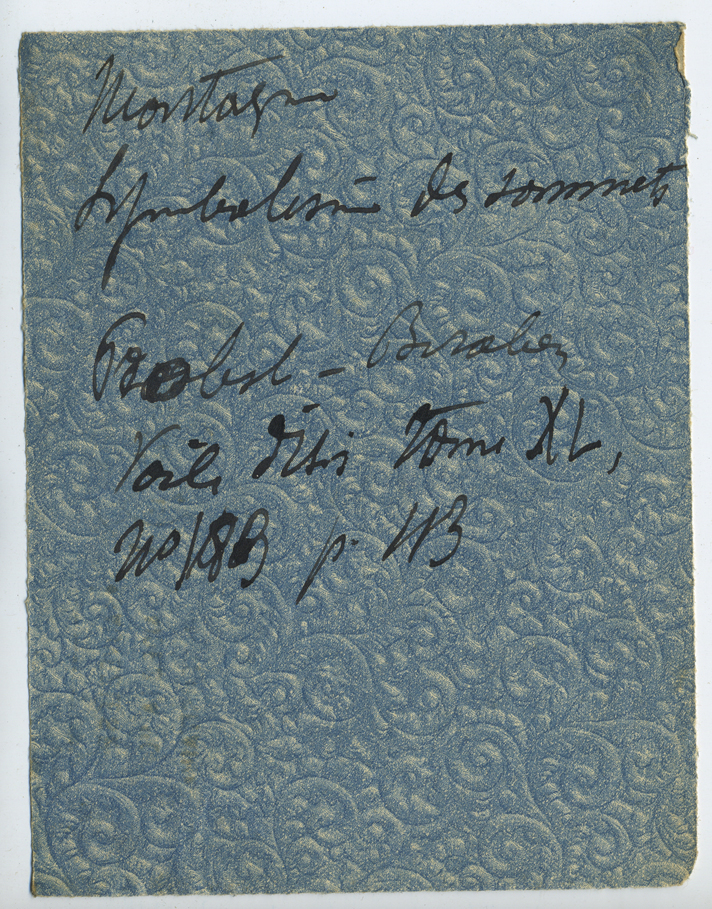 Montagne
Symbolisme des sommets
Probst-Biraben
Voile d'Isis Tome XL,
No 183 p. 113